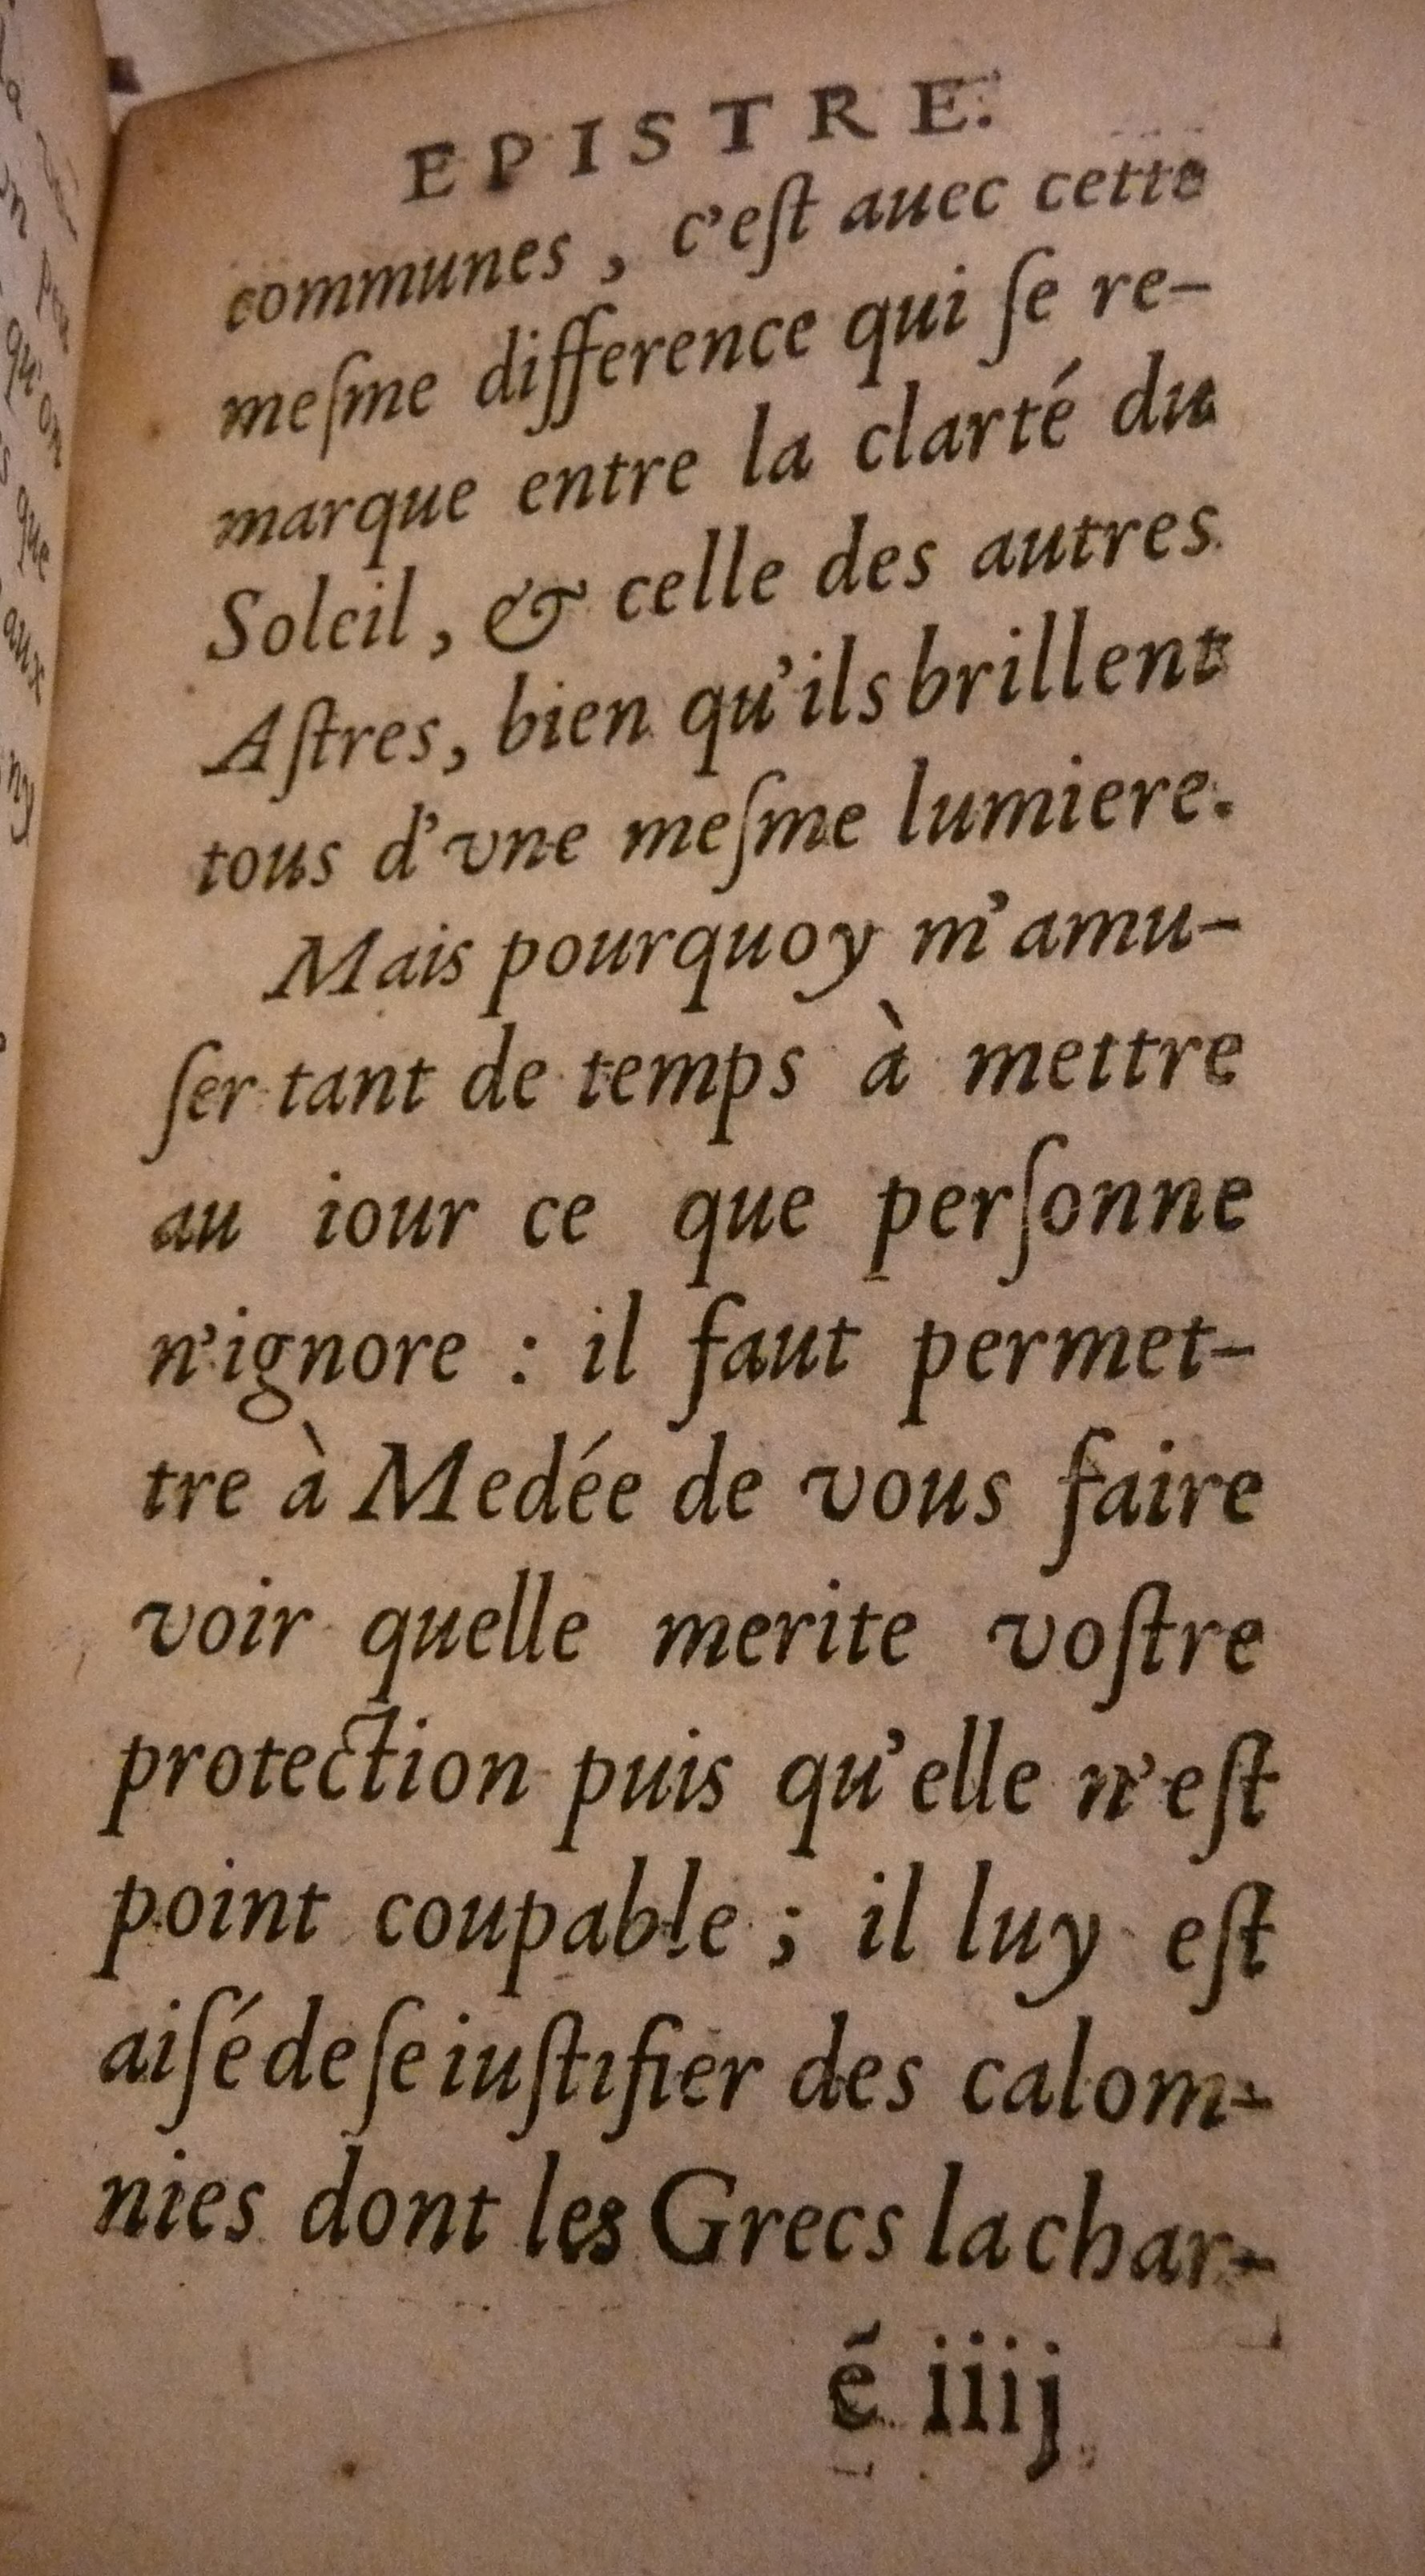 EPISTRE.
communes, c'eſt auec cette
meſme difference qui ſe re-
marque entre la clarté du
Soleil, & celle des autres
Aſtres, bien qu'ils brillent
tous d'vne meſme lumiere.
Mais pourquoy m'amu-
ſer tant de temps à mettre
au iour ce que perſonne
n'ignore : il faut permet-
tre à Medée de vous faire
voir quelle merite voſtre
protection puis qu'elle n'eſt
point coupable ; il luy eſt
aiſé de ſe iuſtifier des calom-
nies dont les Grecs la char-
é iiij